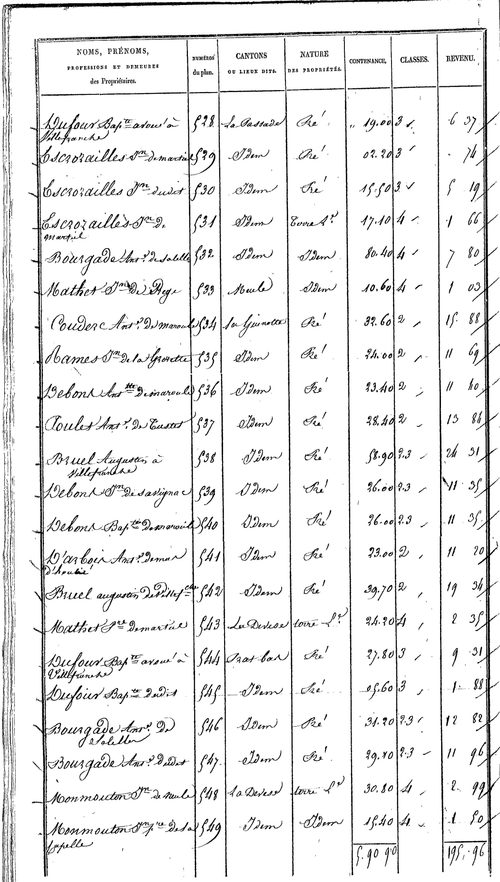 NOMS, PRÉNOMS,
PROFESSIONS ET DEMEURES
des Propriétaires.
NUMÉROS
du plan.
CANTONS
OU LIEUX DITS.
NATURE
DES PROPRIÉTÉS.
CONTENANCE.
CLASSES.
REVENU.
Dufour Bap.te avoué à 528 La Passade Pré 19.00 3 6 37
Villefranche
Escrozailles J.n de martiel 529 Idem Pré 02.20 3 74
Escrozailles J.n du dit 530 Idem Pré 15.50 3 5 19
Escrozailles J.n de 531 Idem Terre L. 17.10 4 1 66
martiel
Bourgade Ant. de Solelle 532 Idem Idem 80.40 4 7 80
Mathet J.n de 533 Idem 10.60 4 1 03
Couderc Ant. de maroule 534 La Guinette Pré 32.60 2 15 88
Rames J.n de la 535 Idem Pré 24.00 2 11 69
Debons Ant. de maroule 536 Idem Pré 23.40 2 11 40
Poules Ant. de Testet 537 Idem Pré 28.40 2 13 84
Bruel Augustin à 538 Idem Pré 58.90 2.3 24 31
Villefranche
Debons J.n de Savignac 539 Idem Pré 26.00 2.3 11 35
Debons Bap.te de maroule 540 Idem Pré 26.00 2.3 11 35
D'arbou Ant. de 541 Idem Pré 23.00 2 11 20
Bruel augustin de Villef.che 542 Idem Pré 39.70 2 19 34
Mathet P.re de martiel 543 La Devese terre L. 24.20 4 2 35
Dufour Bap.te avoué à 544 Prat bas Pré 27.80 3 9 31
Villefranche
Dufour Bap.te du dit 545 Idem Pré 05.60 3 1 88
Bourgade Ant. de 546 Idem Pré 31.20 2.3 12 82
Solelles
Bourgade Ant. du dit 547 Idem Pré 29.40 2.3 11 96
Monmouton J.n de 548 La Devese terre L. 30.80 4 2 99
Monmouton J.n p.re de la 549 Idem Idem 15.40 4 1 50
Capelle
5.90 90 195.96